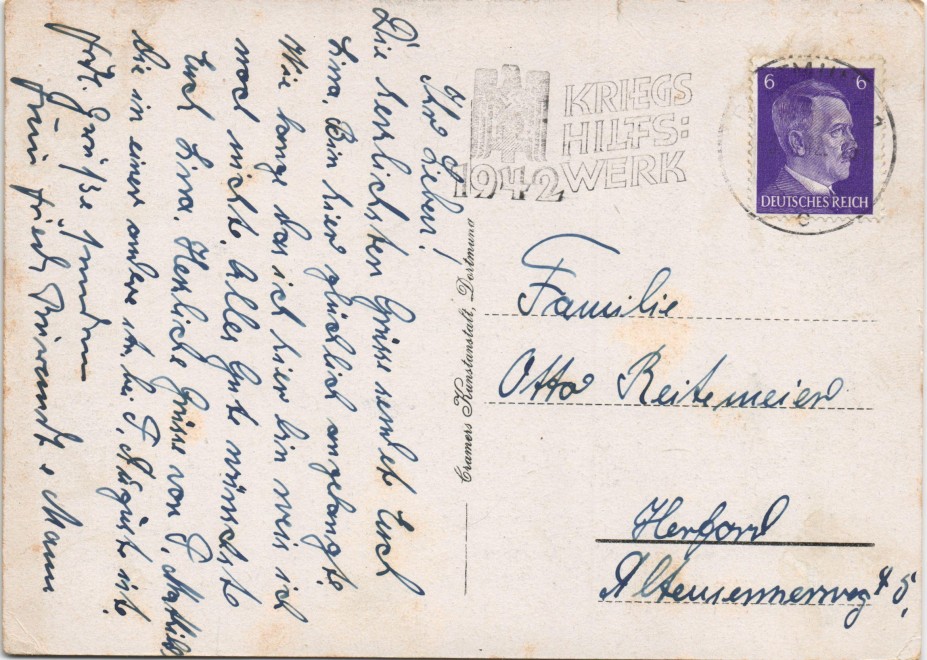 Ihr Lieben!
Die herzlichsten Grüsse sendet Euch
Lina. Bin hier glücklich angelangt.
Wie lange das ich hier bin weis ich
noch nicht. Alles Gute wünscht
Euch Lina. Herzliche Grüsse von T.
die in einer andere ist, bei T. August ist.
Grüsse senden
u. Mann
1942
KRIEGS
HILFS:
WERK
6 6
DEUTSCHES REICH
c
Cramers Kunstanstalt, Dortmund
Familie
Otto Reitemeier
Herford